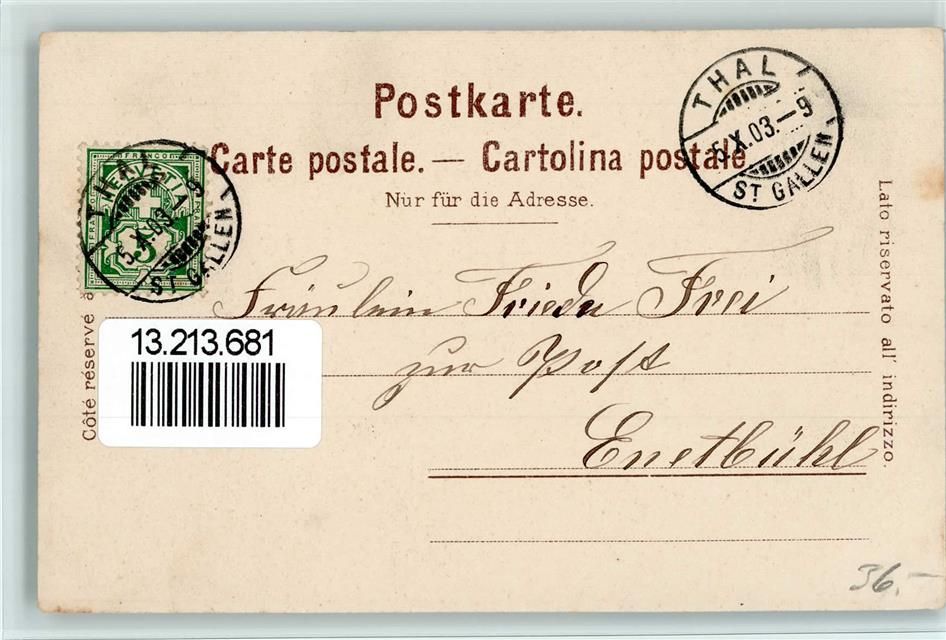 Postkarte.
Carte postale. — Cartolina postale.
Nur für die Adresse.
THAL
5.X.03.—9
ST GALLEN
FRANCO
HELVETIA
5
THAL
5.X.03.—9
ST GALLEN
Côté réservé à
Lato riservato all' indirizzo.
13.213.681
Fräulein Frieda Frei
zur Post
Enetbühl
36.-